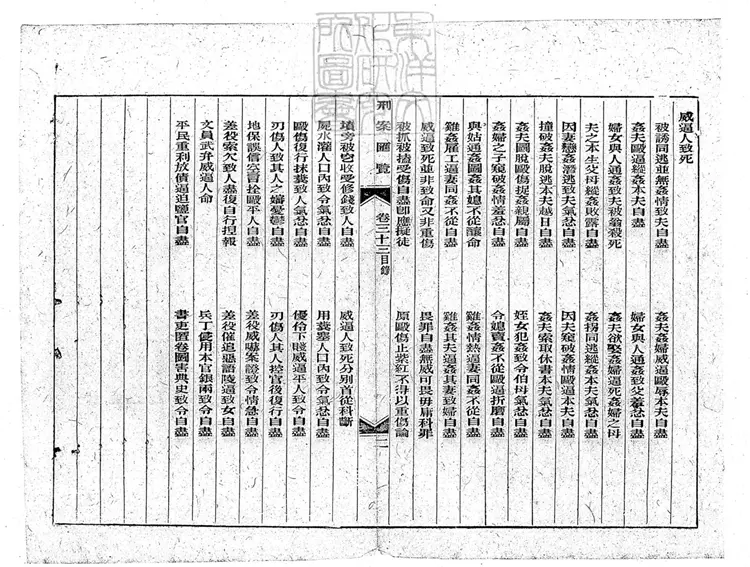 威逼人致死
被誘同逃並無姦情致夫自盡
姦夫姦婦威逼毆辱本夫自盡
姦夫毆逼縱姦本夫自盡
婦女與人通姦致父羞忿自盡
婦女與人通姦致夫被翁殺死
姦夫欲娶姦婦逼死姦婦之母
夫之本生父母縱姦敗露自盡
姦拐同逃縱姦本夫氣忿自盡
因妻戀姦潛逃致夫氣忿自盡
因夫窺破姦情毆逼本夫自盡
撞破姦夫脫逃本夫越日自盡
姦夫索取休書本夫氣忿自盡
姦夫圖脫毆傷捉姦親屬自盡
姪女犯姦致令伯母氣忿自盡
姦婦之子窺破姦情羞忿自盡
令媳賣姦不從毆逼折磨自盡
與姑通姦圖姦其媳不從釀命
姦婦情熱逼妻同姦不從自盡
雖姦雇工逼妻同姦不從自盡
雖姦其夫逼姦其妻致婦自盡
威逼致死並非致命又非重傷
畏罪自盡無威可畏毋庸科罪
被抓被揢受傷自盡卽應擬徒
原毆傷止紫紅不得以重傷論
刑案匯覽
卷三十三目錄
二
墳旁被窃收受修錢致人自盡
威逼人致死分別首從科斷
屍水灌人口內致令氣忿自盡
用糞塞人口內致令氣忿自盡
毆傷復行抹糞致人氣忿自盡
優伶下賤威逼平人致令自盡
刃傷人致其人之孀憂鬱自盡
刃傷人其人控官後復行自盡
地保誤信窃賊拴毆平人自盡
差役威嚇案證致令情急自盡
差役索欠致人自盡復自行捏報
差役催追惡語陵逼致女自盡
文員武弁威逼人命
兵丁使用本官銀兩致令自盡
平民重利放債逼迫鹽官自盡
書吏匿卷圖害典史致令自盡